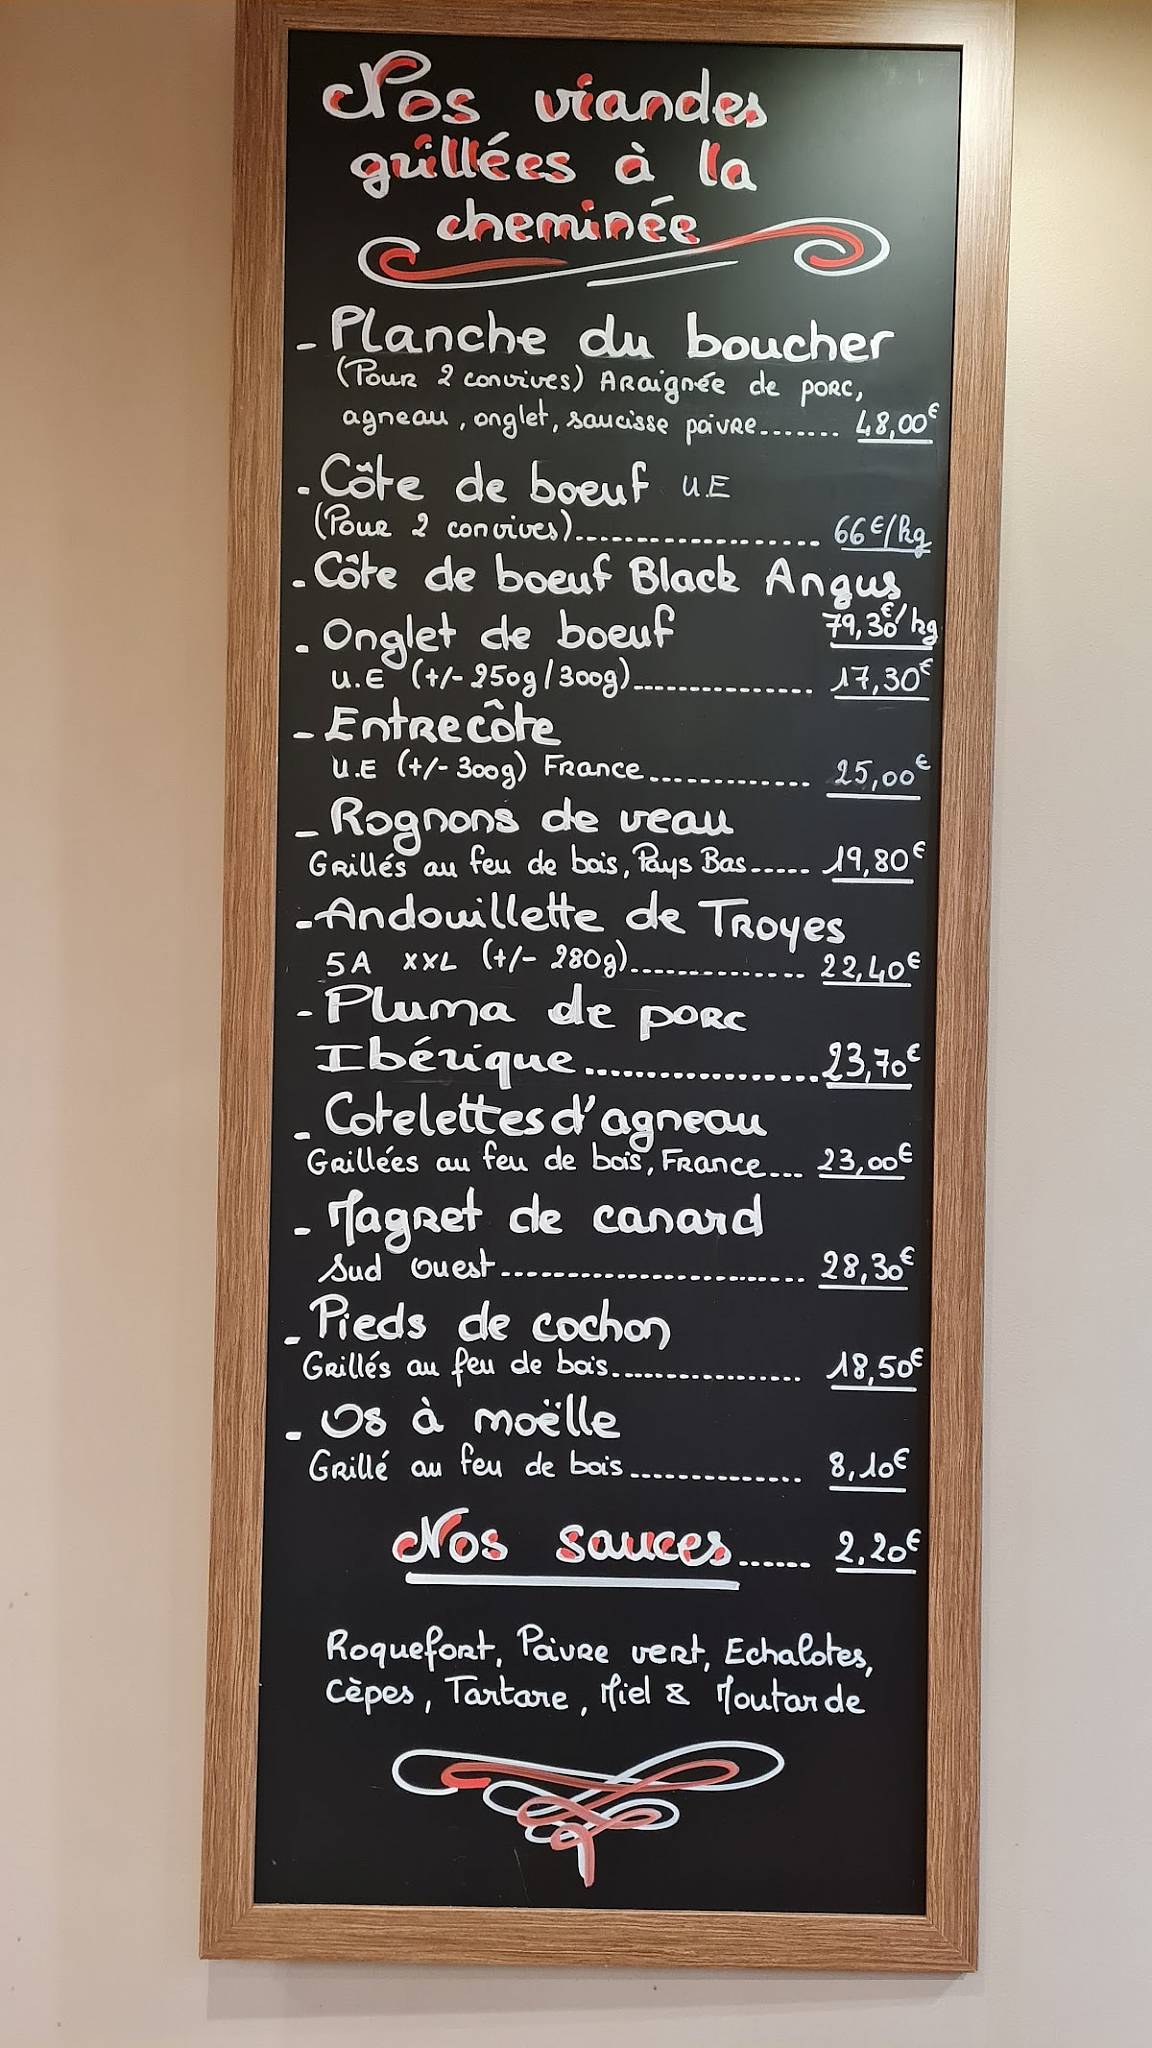 Nos viandes
grillées à la
cheminée
- Planche du boucher
(Pour 2 convives) Araignée de porc,
agneau, onglet, saucisse poivre....... 48,00€
- Côte de boeuf U.E
(Pour 2 convives)................... 66€/kg
- Côte de boeuf Black Angus
79,30€/kg
- Onglet de boeuf
U.E (+/- 250g/300g)............... 17,30€
- Entrecôte
U.E (+/- 300g) France............. 25,00€
- Rognons de veau
Grillés au feu de bois, Pays Bas..... 19,80€
- Andouillette de Troyes
5A XXL (+/- 280g)............... 22,40€
- Pluma de porc
Ibérique................. 23,70€
- Cotelettes d'agneau
Grillées au feu de bois, France.... 23,00€
- Magret de canard
Sud Ouest......................... 28,30€
- Pieds de cochon
Grillés au feu de bois................ 18,50€
- Os à moëlle
Grillé au feu de bois.............. 8,10€
Nos sauces...... 2,20€
Roquefort, Poivre vert, Echalotes,
Cèpes, Tartare, Miel & Moutarde